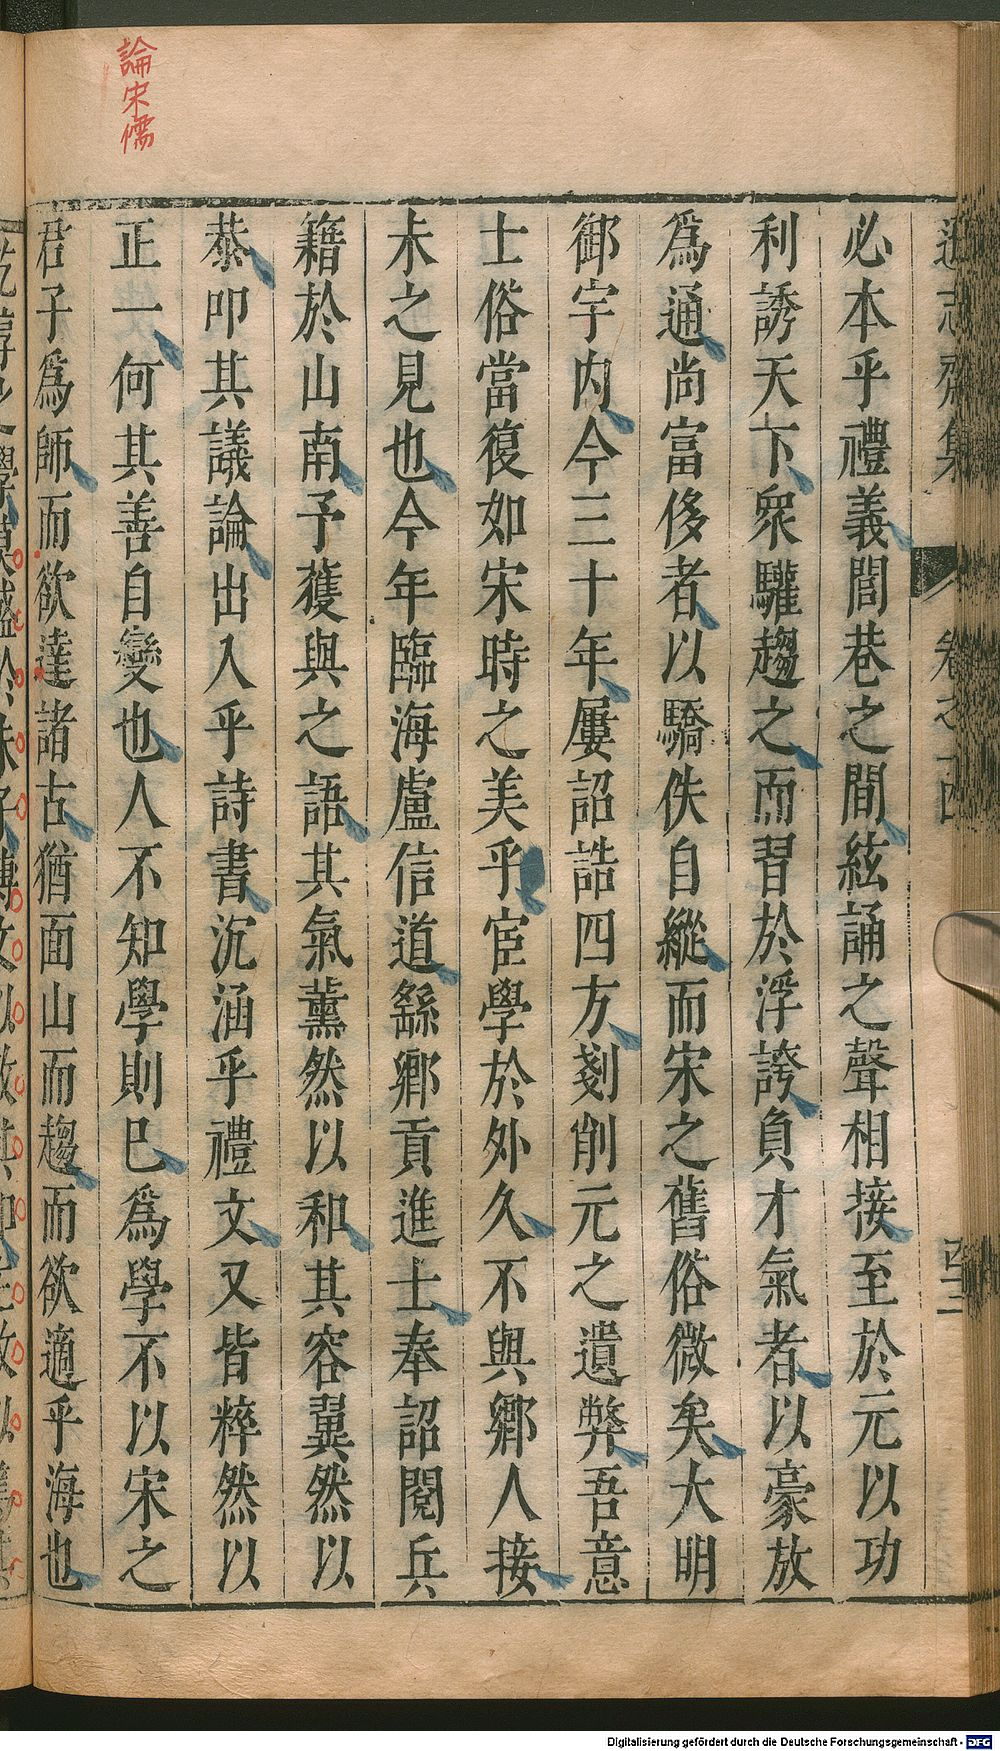 論宋儒
必本乎禮義閭巷之間絃誦之聲相接至於元以功
利誘天下衆驩趨之而習於浮誇負才氣者以豪放
爲通尚富侈者以驕佚自縱而宋之舊俗微矣大明
御宇内今三十年屢詔誥四方剗削元之遺弊吾意
士俗當復如宋時之美乎宦學於外久不與鄉人接
未之見也今年臨海盧信道繇鄉貢進士奉詔閱兵
籍於山南予獲與之語其氣薰然以和其容翼然以
恭叩其議論出入乎詩書沉涵乎禮文又皆粹然以
正一何其善自變也人不知學則巳爲學不以宋之
君子爲師而欲達諸古猶面山而趨而欲適乎海也
Digitalisierung gefördert durch die Deutsche Forschungsgemeinschaft - DFG